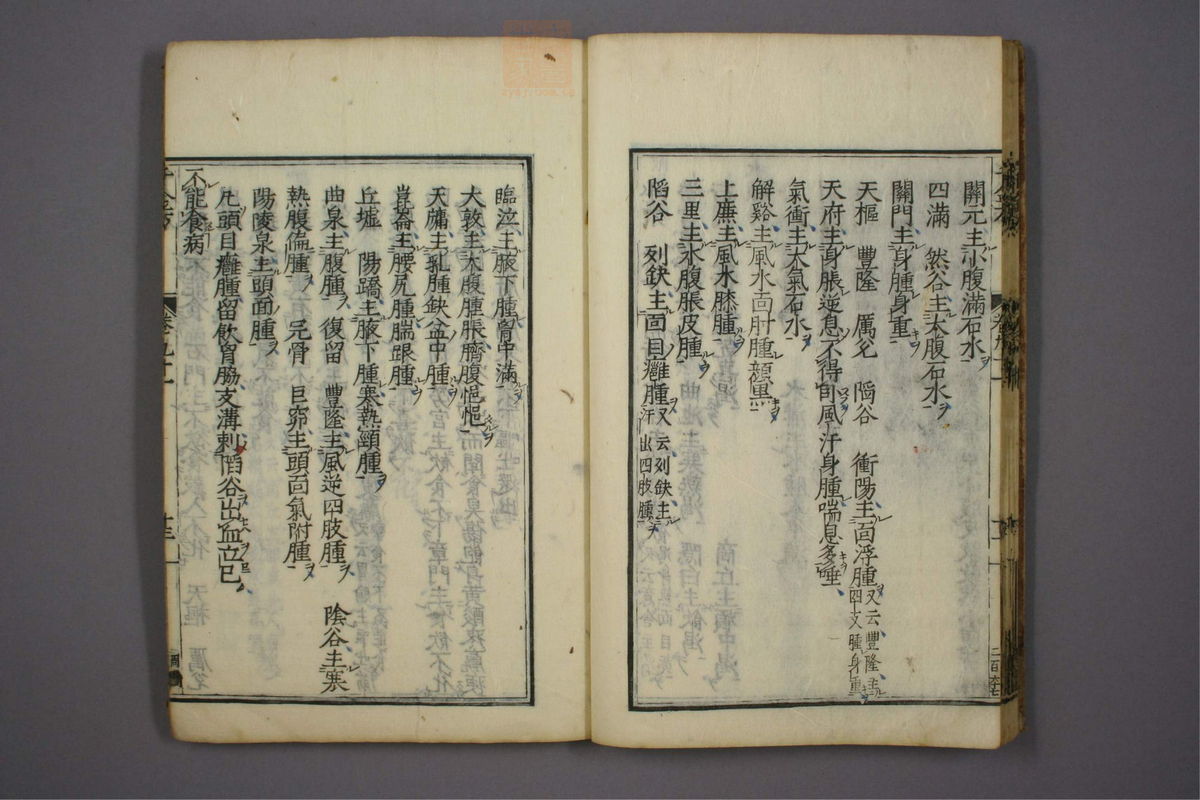 關元主小腹滿石水
四滿　然谷主大腹石水
關門主身腫身重
天樞　豐隆　厲兌　陷谷　衝陽主面浮腫又云豐隆主四支腫身重
天府主身脹逆息不得臥風汗身腫喘息多唾
氣衝主大氣石水
解谿主風水面胕腫顔黒
上廉主風水膝腫
三里主水腹脹皮腫
陷谷　列缺主面目癰腫又云列缺主汗出四肢腫
臨泣主腋下腫胷中滿
大敦主大腹腫脹臍腹悒悒
天牖主乳腫缺盆中腫
崑崙主腰尻腫腨跟腫
丘墟　陽蹻主腋下腫寒熱頸腫
曲泉主腹腫　復留　豐隆主風逆四肢腫　陰谷主寒
熱腹偏腫　完骨　巨窌主頭面氣胕腫
陽陵泉主頭面腫
凡頭目癰腫留飮胷脇支滿刺陷谷出血立已
不能食病
千金方
卷九十一
十三